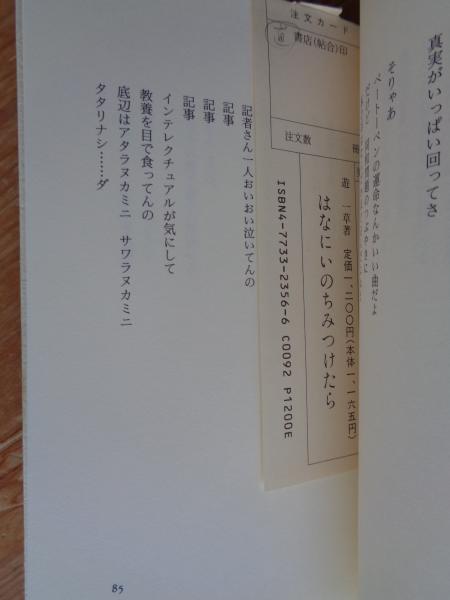 真実がいっぱい回ってさ
そりゃあ
ベートーベンの運命なんかいい曲だよ
だけど 同和問題のつぶやきに
注文カード
書店(帖合)印
注文数
冊
遊 一草著 定価一、二〇〇円(本体一、一六五円)
はなにいのちみつけたら
ISBN4-7733-2356-6 C0092 P1200E
記者さん一人おいおい泣いてんの
記事
記事
インテレクチュアルが気にして
教養を目で食ってんの
底辺はアタラヌカミニ サワラヌカミニ
タタリナシ……ダ
85